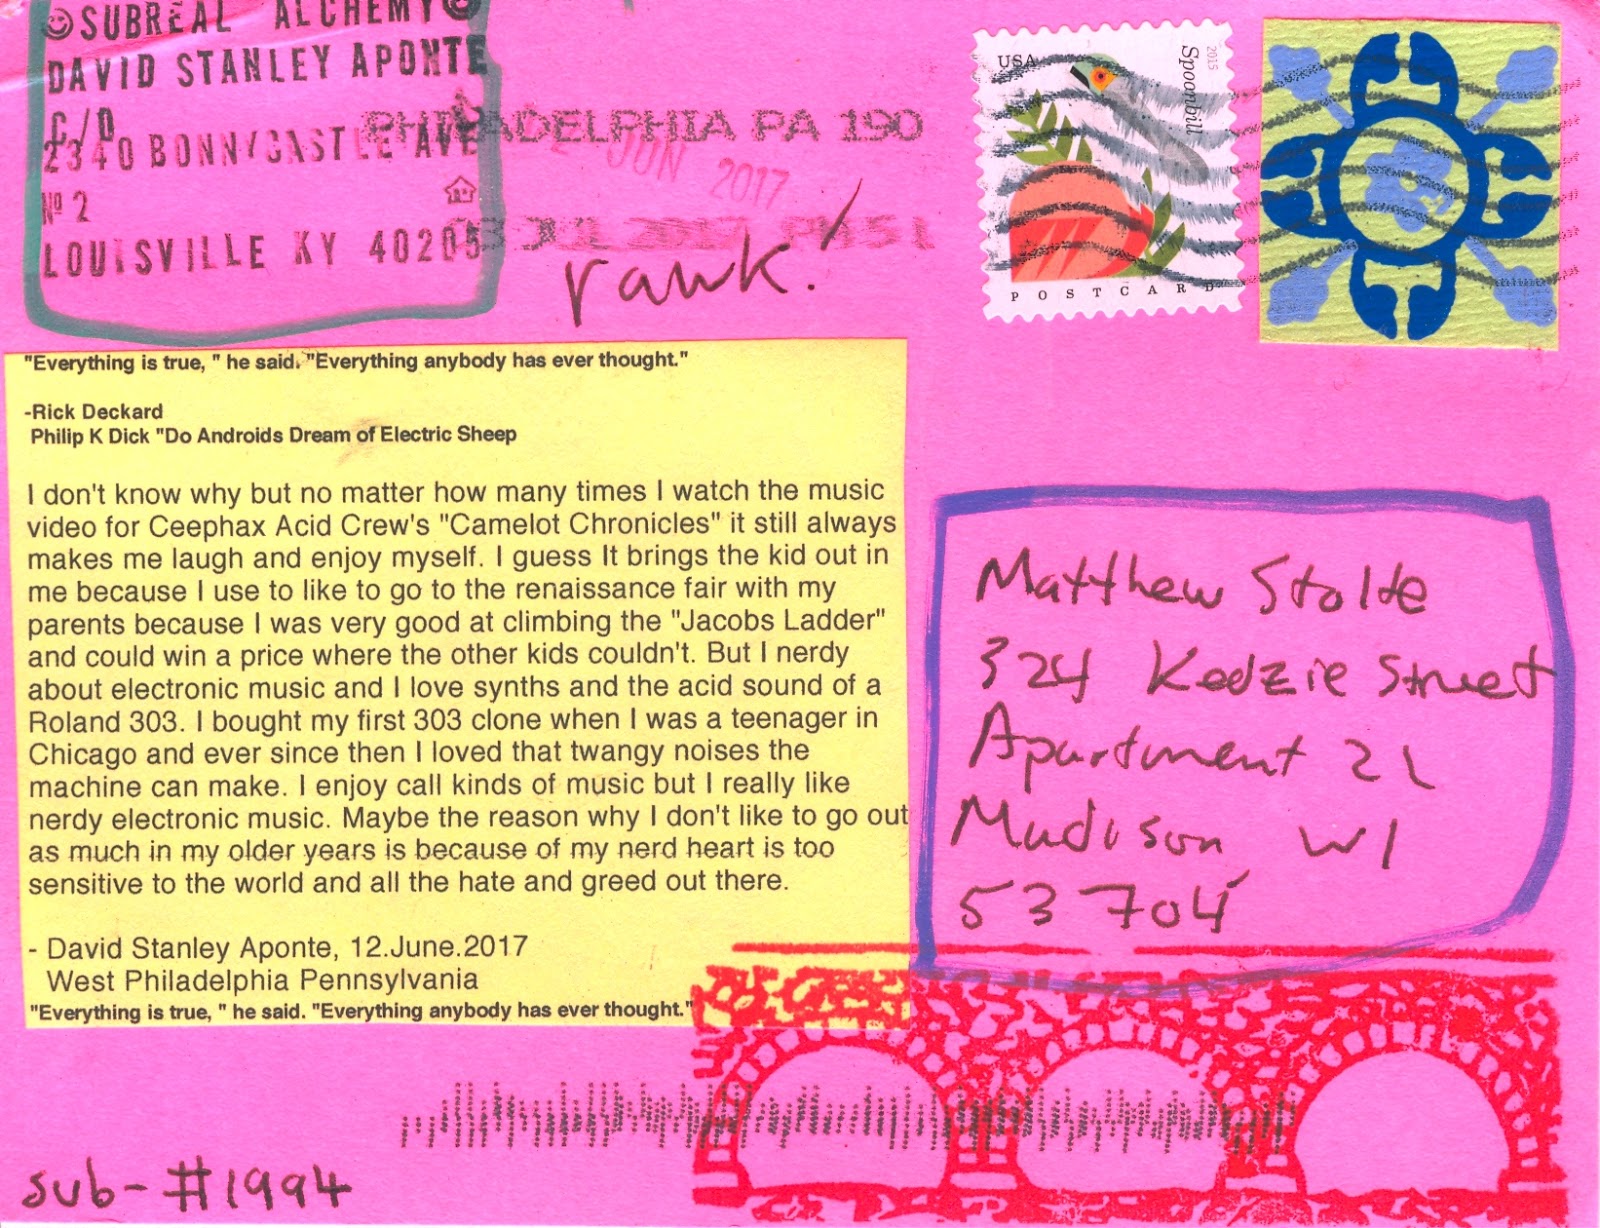 ☺SUBREAL ALCHEMY©
DAVID STANLEY APONTE
C/O
2340 BONNYCASTLE AVE
Nº 2
LOUISVILLE KY 40205
PHILADELPHIA PA 190
JUN 2017
JUL 2017 PM 5 L
rawk!
USA
Spoonbill
2015
POSTCARD
"Everything is true, " he said. "Everything anybody has ever thought."
-Rick Deckard
Philip K Dick "Do Androids Dream of Electric Sheep
I don't know why but no matter how many times I watch the music
video for Ceephax Acid Crew's "Camelot Chronicles" it still always
makes me laugh and enjoy myself. I guess It brings the kid out in
me because I use to like to go to the renaissance fair with my
parents because I was very good at climbing the "Jacobs Ladder"
and could win a price where the other kids couldn't. But I nerdy
about electronic music and I love synths and the acid sound of a
Roland 303. I bought my first 303 clone when I was a teenager in
Chicago and ever since then I loved that twangy noises the
machine can make. I enjoy call kinds of music but I really like
nerdy electronic music. Maybe the reason why I don't like to go out
as much in my older years is because of my nerd heart is too
sensitive to the world and all the hate and greed out there.
- David Stanley Aponte, 12.June.2017
West Philadelphia Pennsylvania
"Everything is true, " he said. "Everything anybody has ever thought."
Matthew Stolte
324 Kedzie Street
Apartment 21
Madison WI
53704
sub-#1994